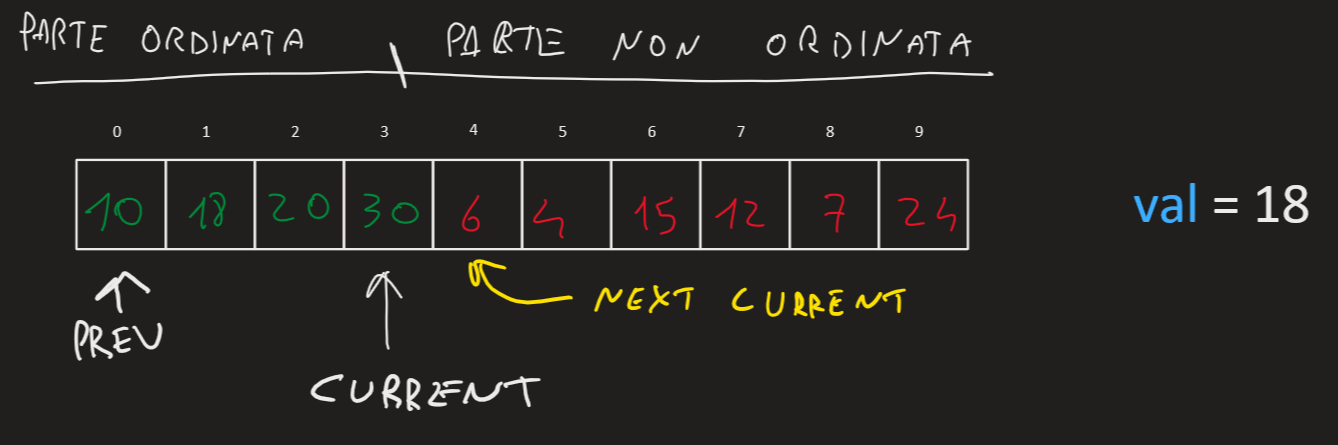 PARTE ORDINATA PARTE NON ORDINATA
0 1 2 3 4 5 6 7 8 9
10 18 20 30 6 4 15 12 7 24
val = 18
NEXT CURRENT
PREV
CURRENT